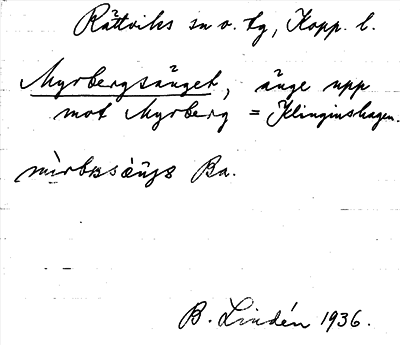 Rättviks sn o. tg, Kopp. l.
Myrbergsänget, änge upp
mot Myrberg = Klinginshagen.
Ba.
B. Lindén 1936.